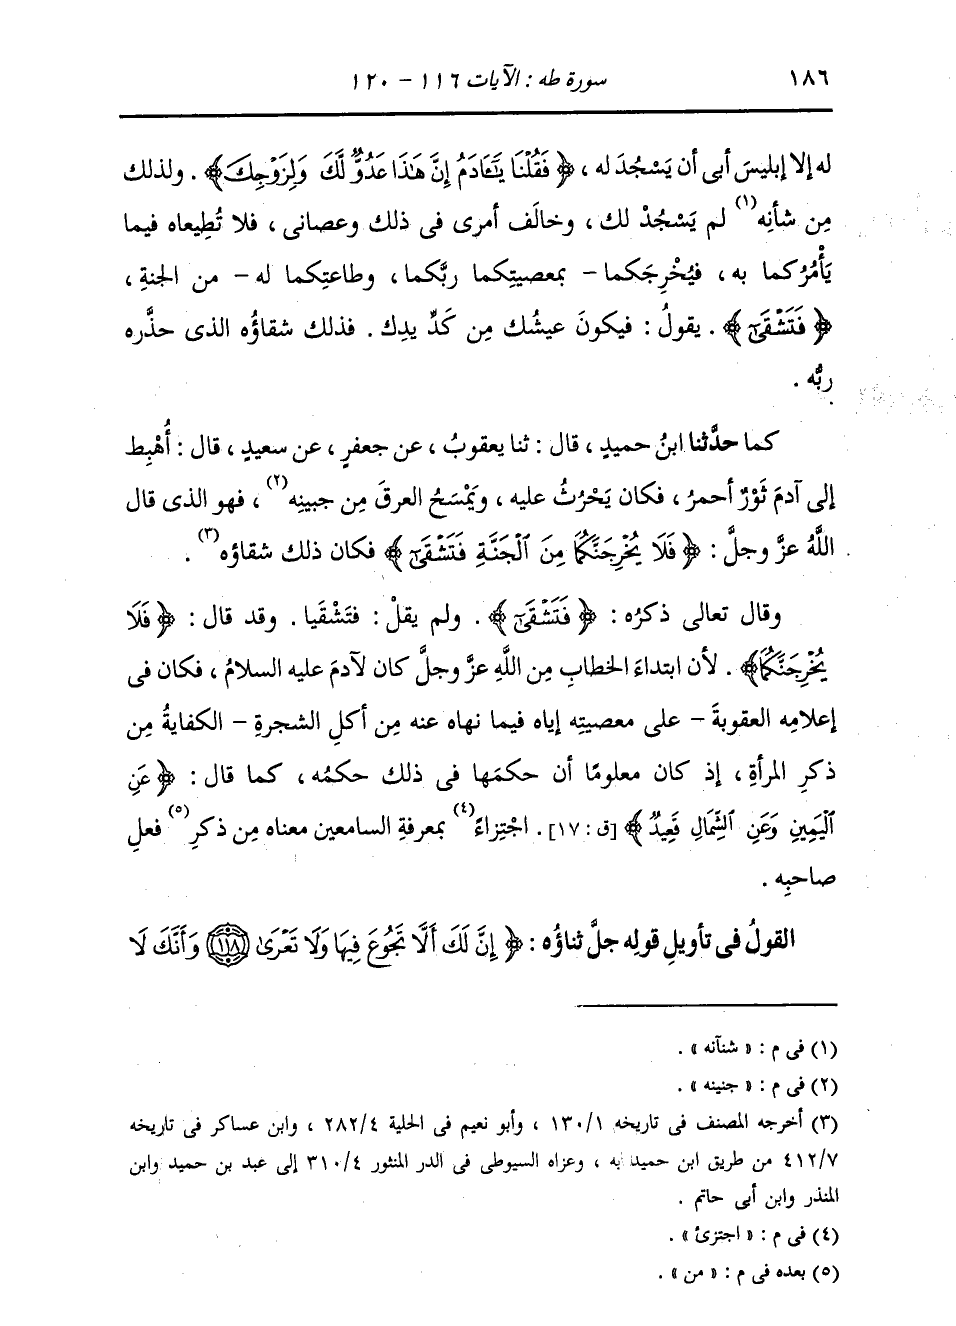 ١٨٦ سورة طه : الآيات ١١٦ - ١٢٠
له إلا إبليسَ أبى أن يَسْجُدَ له ، ﴿ فَقُلْنَا يَـَٰٓـَٔادَمُ إِنَّ هَـٰذَا عَدُوٌّ لَّكَ وَلِزَوْجِكَ ﴾ . ولذلك
مِن شأنِه(١) لم يَسْجُدْ لك ، وخالَف أمرى فى ذلك وعصانى ، فلا تُطِيعاه فيما
يَأْمُرُكما به ، فيُخْرِجَكما - بمعصيتِكما ربَّكما ، وطاعتِكما له - من الجنةِ ،
﴿ فَتَشْقَىٰٓ ﴾ . يقولُ : فيكونَ عيشُك مِن كَدِّ يدِك . فذلك شقاؤُه الذى حذَّره
ربُّه .
كما حدَّثنا ابنُ حميدٍ ، قال : ثنا يعقوبُ ، عن جعفرٍ ، عن سعيدٍ ، قال : أُهْبِط
إلى آدمَ ثَوْرٌ أحمرُ ، فكان يَحْرُثُ عليه ، ويَمْسَحُ العرقَ مِن جبينِه(٢) ، فهو الذى قال
اللَّهُ عزَّ وجلَّ : ﴿ فَلَا يُخْرِجَنَّكُمَا مِنَ ٱلْجَنَّةِ فَتَشْقَىٰٓ ﴾ فكان ذلك شقاؤه(٣) .
وقال تعالى ذكرُه : ﴿ فَتَشْقَىٰٓ ﴾ . ولم يقلْ : فتَشْقَيا . وقد قال : ﴿ فَلَا
يُخْرِجَنَّكُمَا ﴾ . لأن ابتداءَ الخطابِ مِن اللَّهِ عزَّ وجلَّ كان لآدمَ عليه السلامُ ، فكان فى
إعلامِه العقوبةَ - على معصيتِه إياه فيما نهاه عنه مِن أكلِ الشجرةِ - الكفايةُ مِن
ذكرِ المرأةِ ، إذ كان معلومًا أن حكمَها فى ذلك حكمُه ، كما قال : ﴿ عَنِ
ٱلْيَمِينِ وَعَنِ ٱلشِّمَالِ قَعِيدٌ ﴾ [ق : ١٧] . اجْتِزاءً(٤) بمعرفةِ السامعين معناه مِن ذكرِ(٥) فعلِ
صاحبِه .
القولُ فى تأويلِ قولِه جلَّ ثناؤُه : ﴿ إِنَّ لَكَ أَلَّا تَجُوعَ فِيهَا وَلَا تَعْرَىٰ ١١٨ وَأَنَّكَ لَا
(١) فى م : « شنآنه » .
(٢) فى م : « جنينه » .
(٣) أخرجه المصنف فى تاريخه ١٣٠/١ ، وأبو نعيم فى الحلية ٢٨٢/٤ ، وابن عساكر فى تاريخه
٤١٢/٧ من طريق ابن حميد به ، وعزاه السيوطى فى الدر المنثور ٣١٠/٤ إلى عبد بن حميد وابن
المنذر وابن أبى حاتم .
(٤) فى م : « اجتزئ » .
(٥) بعده فى م : « من » .